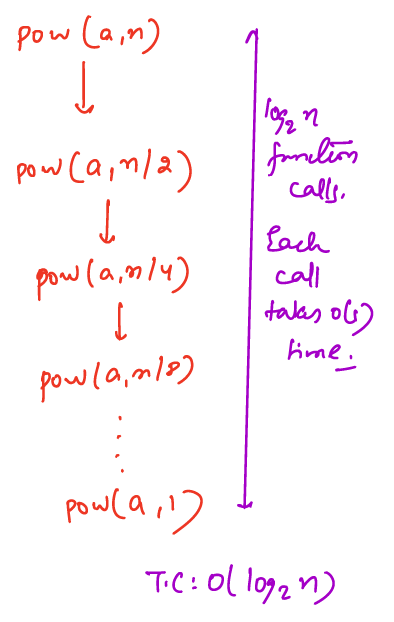 pow(a,n)
pow(a,n/2)
pow(a,n/4)
pow(a,n/8)
pow(a,1)
log₂ n
function
calls.
Each
call
takes o(1)
time.
T.C: O(log₂ n)